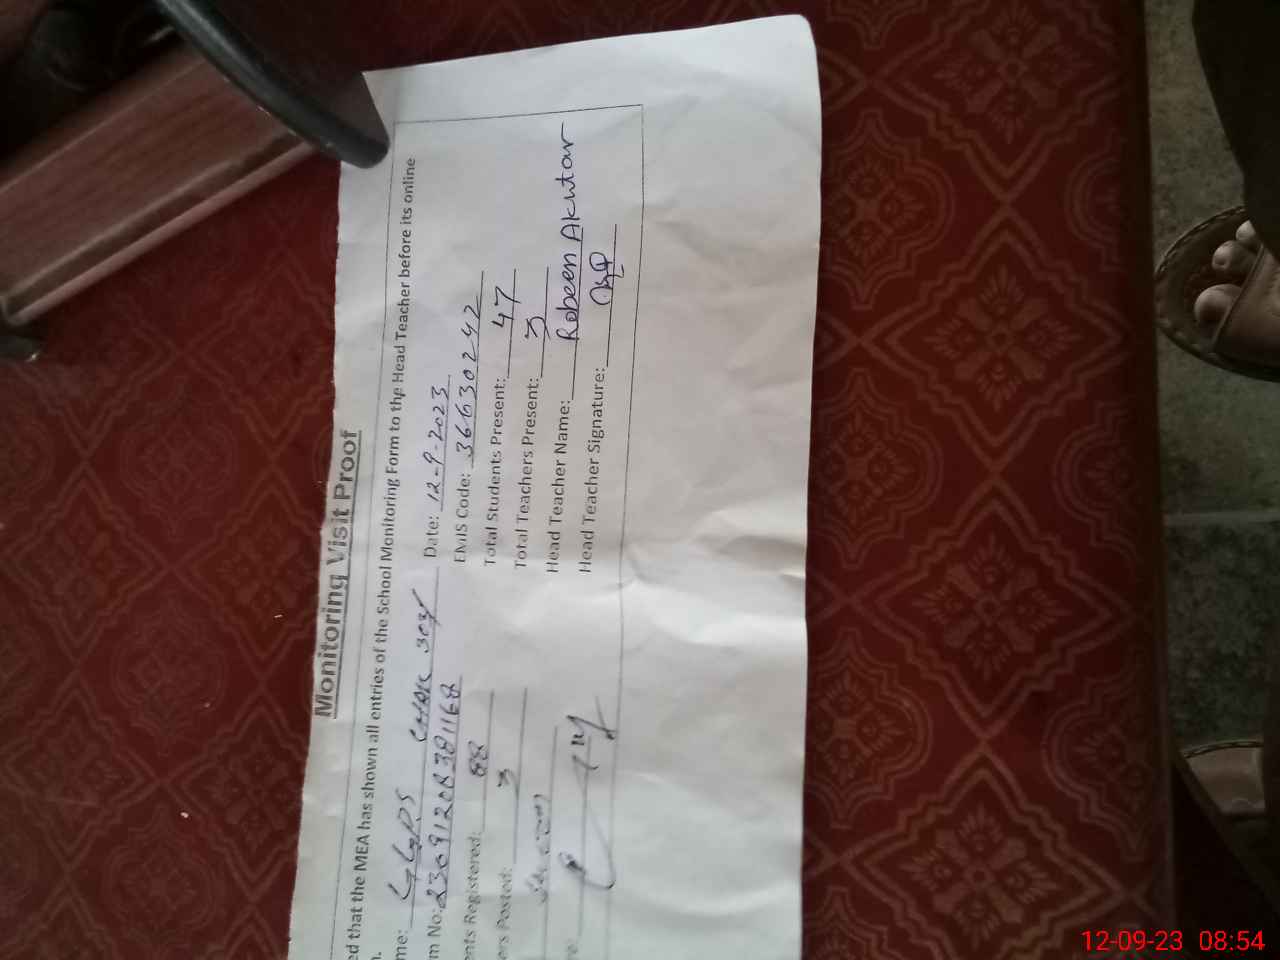 Monitoring Visit Proof
ed that the MEA has shown all entries of the School Monitoring Form to the Head Teacher before its online
n.
me: GGPS CHAK 303 Date: 12-9-2023
m No: EMIS Code: 36630242
ents Registered: 88 Total Students Present: 47
ers Posted: 3 Total Teachers Present: 3
Head Teacher Name: Robeen Akhtar
re: Head Teacher Signature:
12-09-23 08:54